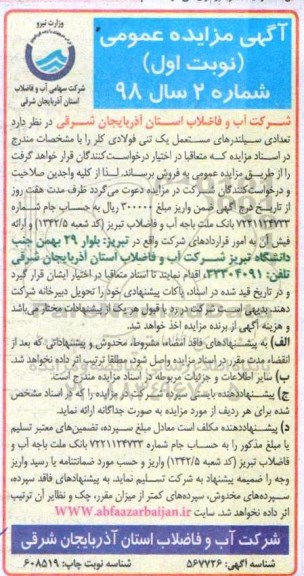 وزارت نیرو
شرکت سهامی آب و فاضلاب
استان آذربایجان شرقی
آگهی مزایده عمومی
(نوبت اول)
شماره ۲ سال ۹۸
شرکت آب و فاضلاب استان آذربایجان شرقی در نظر دارد
تعدادی سیلندرهای مستعمل یک تنی فولادی کلر را با مشخصات مندرج
در اسناد مزایده که متعاقبا در اختیار درخواست‌کنندگان قرار خواهد گرفت
را از طریق مزایده عمومی به فروش برساند. لذا از کلیه واجدین صلاحیت
و درخواست‌کنندگان شرکت در مزایده دعوت می‌گردد ظرف مدت هفت روز
از تاریخ درج آگهی ضمن واریز مبلغ ۳۰۰۰۰۰ ریال به حساب جام شماره
۷۲۲۱۱۲۴۷۳۳ بانک ملت باجه آب و فاضلاب تبریز (کد شعبه ۱۳۴۲/۵) و ارائه
فیش آن به امور قراردادهای شرکت واقع در تبریز: بلوار ۲۹ بهمن جنب
دانشگاه تبریز شرکت آب و فاضلاب استان آذربایجان شرقی
تلفن: ۳۳۳۰۴۰۹۱ اقدام نمایند تا اسناد متعاقبا در اختیار ایشان قرار گیرد
و در تاریخ قید شده در اسناد، پاکات پیشنهادی خود را تحویل دبیرخانه شرکت
دهند. بدیهی است شرکت در رد یا قبول هر یک از پیشنهادات مختار می‌باشد
و هزینه آگهی از برنده مزایده اخذ خواهد شد.
الف) به پیشنهادهای فاقد امضاء، مشروط، مخدوش و پیشنهاداتی که بعد از
انقضاء مدت مقرر در اسناد مزایده واصل شود، مطلقا ترتیب اثر داده نخواهد شد.
ب) سایر اطلاعات و جزئیات مربوطه در اسناد مزایده مندرج است.
ج) پیشنهاددهنده بایستی سپرده شرکت در مزایده را که در اسناد مشخص
شده برای هر ردیف از مورد مزایده به صورت جداگانه ارائه نماید.
د) پیشنهاددهنده مکلف است معادل مبلغ سپرده، تضمین‌های معتبر تسلیم
یا مبلغ مذکور را به حساب جام شماره ۷۲۲۱۱۲۴۷۳۳ بانک ملت باجه آب و
فاضلاب تبریز (کد شعبه ۱۳۴۲/۵) واریز و حسب مورد ضمانتنامه یا رسید واریز
وجه را ضمیمه پیشنهاد به شرکت تسلیم نماید. به پیشنهادهای فاقد سپرده،
سپرده‌های مخدوش، سپرده‌های کمتر از میزان مقرر، چک و نظایر آن ترتیب
اثر داده نخواهد شد. سایت www.abfaazarbaijan.ir
شرکت آب و فاضلاب استان آذربایجان شرقی
شناسه آگهی: ۵۶۷۷۲۶
شناسه نوبت چاپ: ۶۰۸۵۱۹